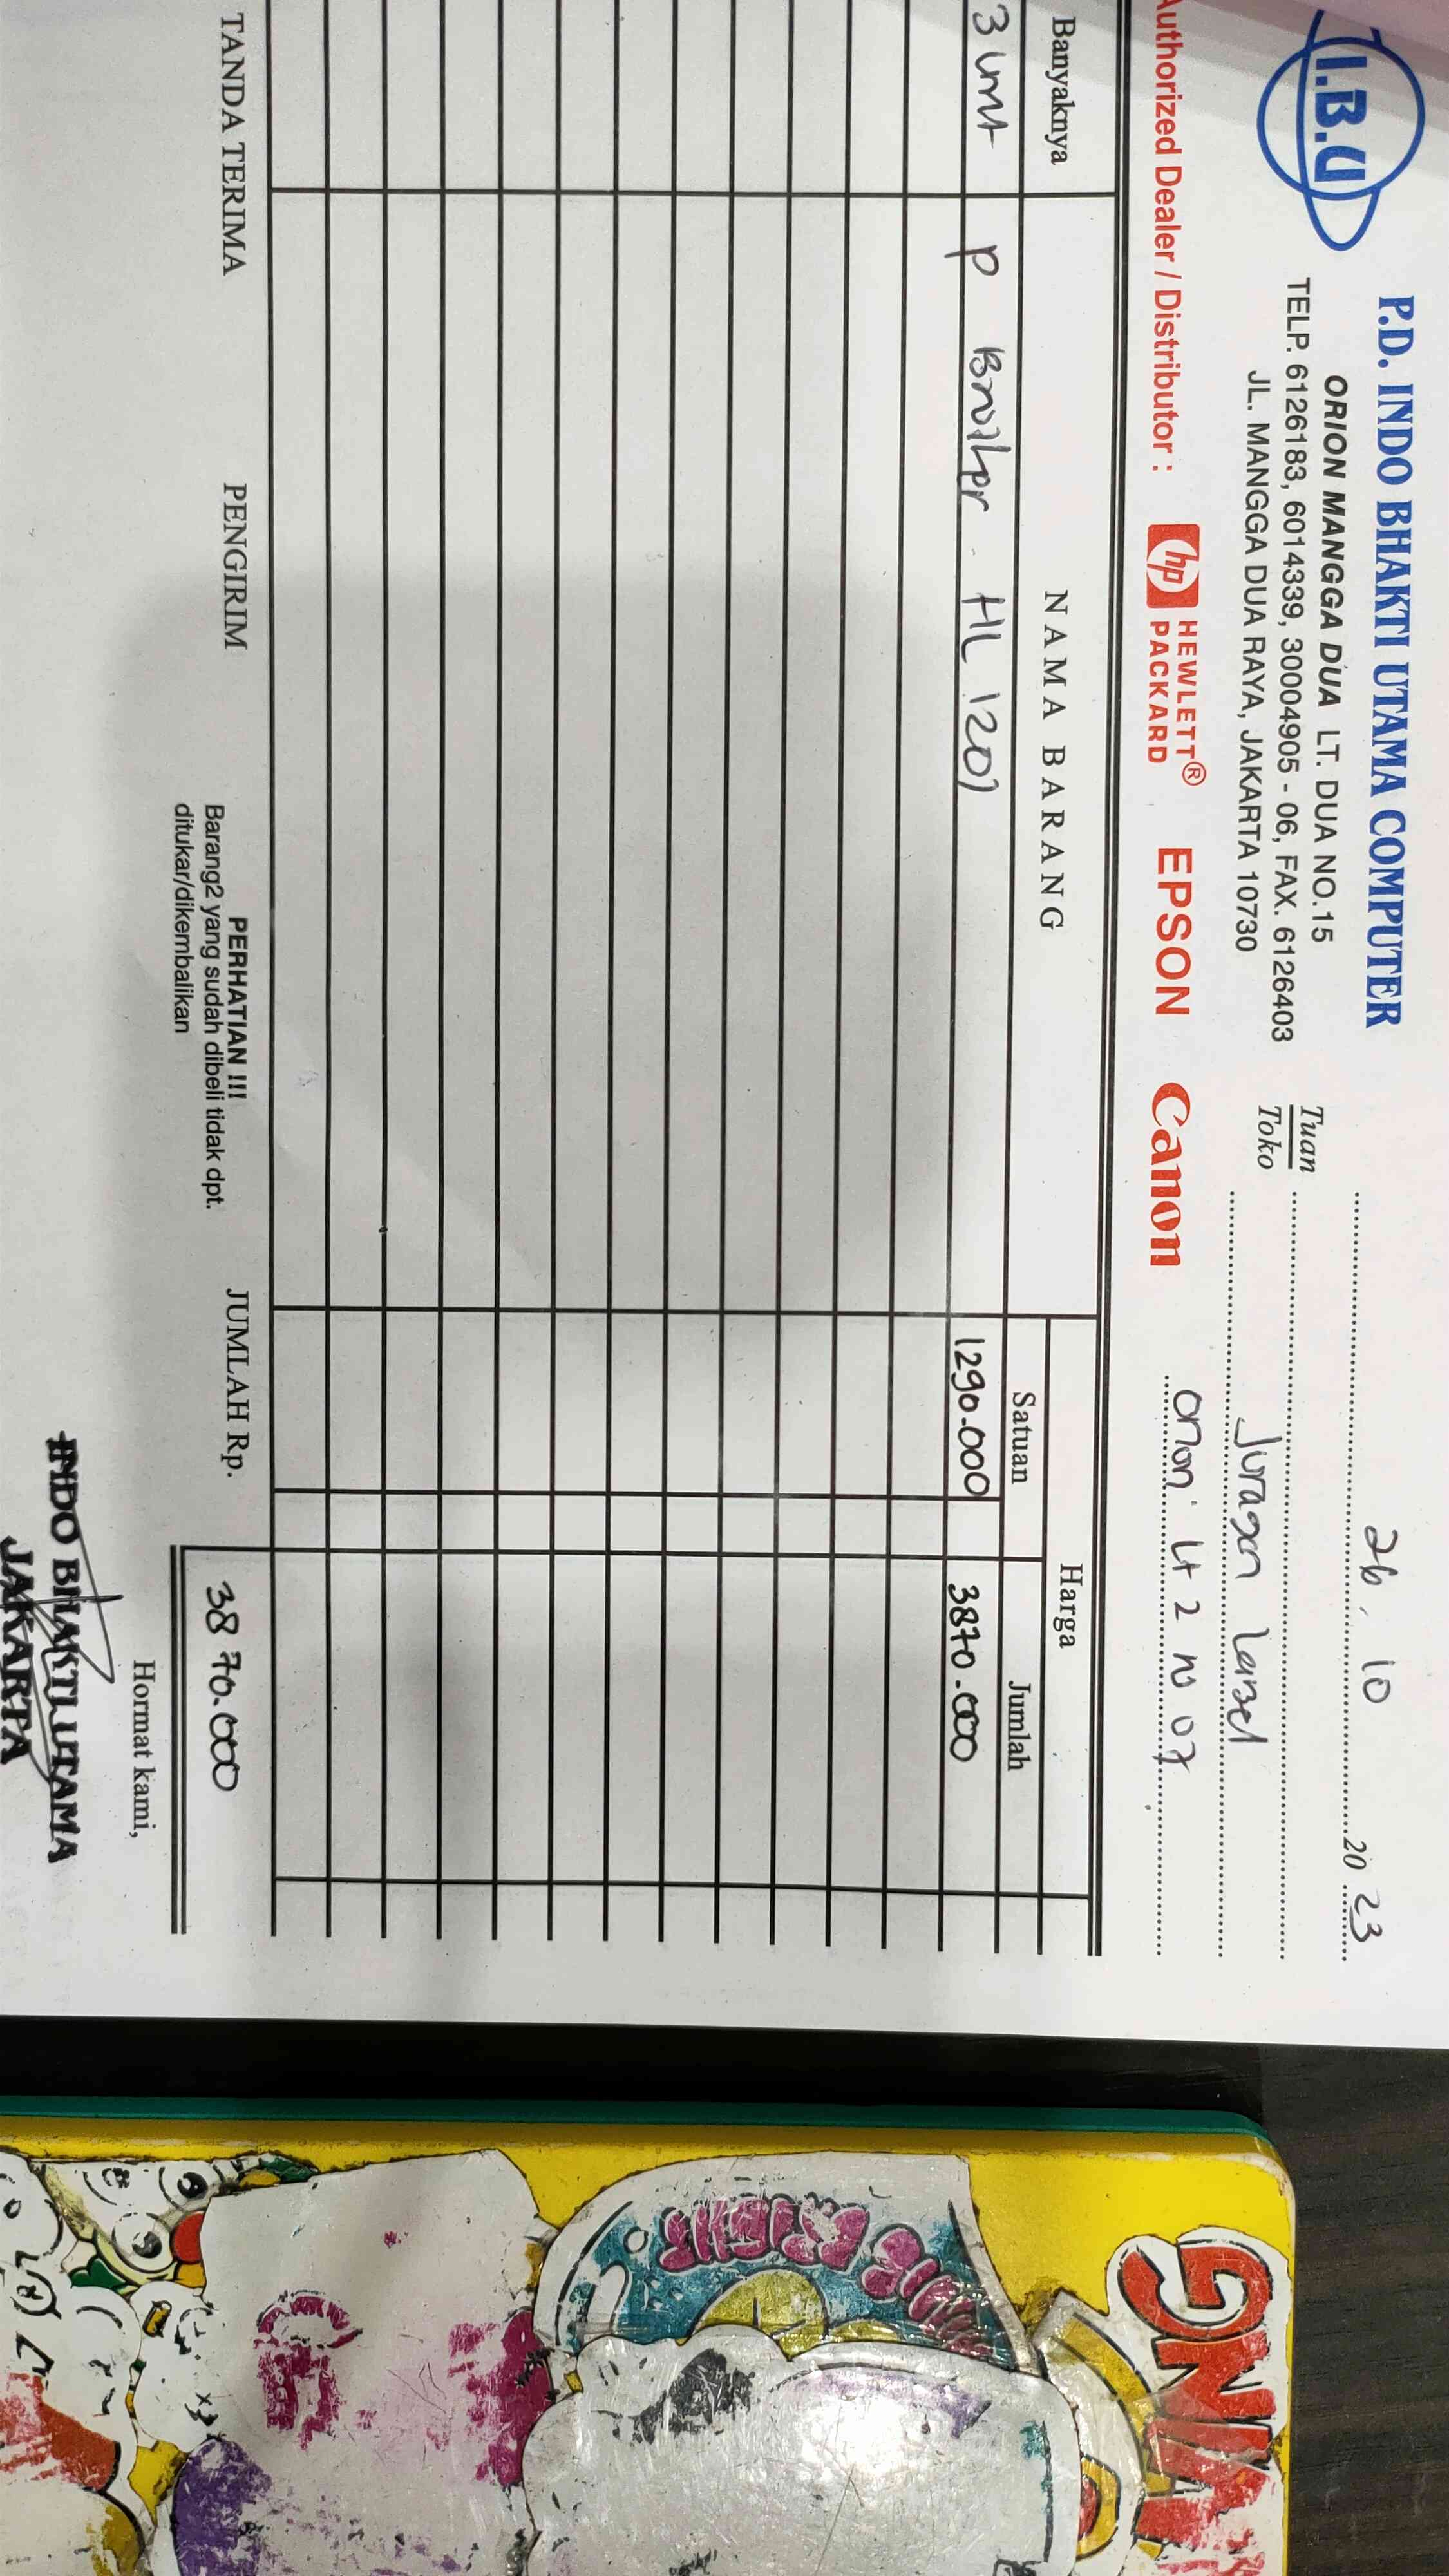 I.B.U
P.D. INDO BHAKTI UTAMA COMPUTER
ORION MANGGA DUA LT. DUA NO.15
TELP. 6126183, 6014339, 30004905 - 06, FAX. 6126403
JL. MANGGA DUA RAYA, JAKARTA 10730
26. 10 20 23
Tuan
Toko
Juragan
Orion Lt 2 no 07
Authorized Dealer / Distributor : hp HEWLETT® PACKARD EPSON Canon
Banyaknya NAMA BARANG Harga
Satuan Jumlah
3 unit P Brother HL 1201 1290.000 3870.000
TANDA TERIMA PENGIRIM PERHATIAN !!! JUMLAH Rp. 3870.000
Barang2 yang sudah dibeli tidak dpt.
ditukar/dikembalikan
Hormat kami,
INDO BHAKTI UTAMA
JAKARTA